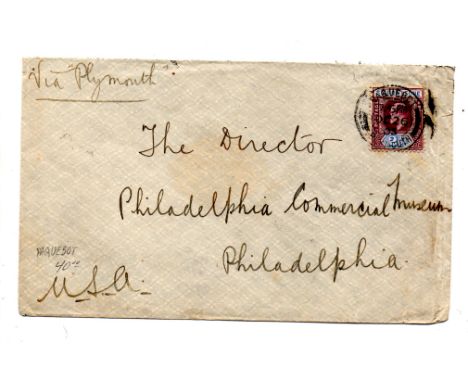 Via "Plymouth"
The Director
Philadelphia Commercial Museum
Philadelphia.
PAQUEBOT
40.00
U.S.A.